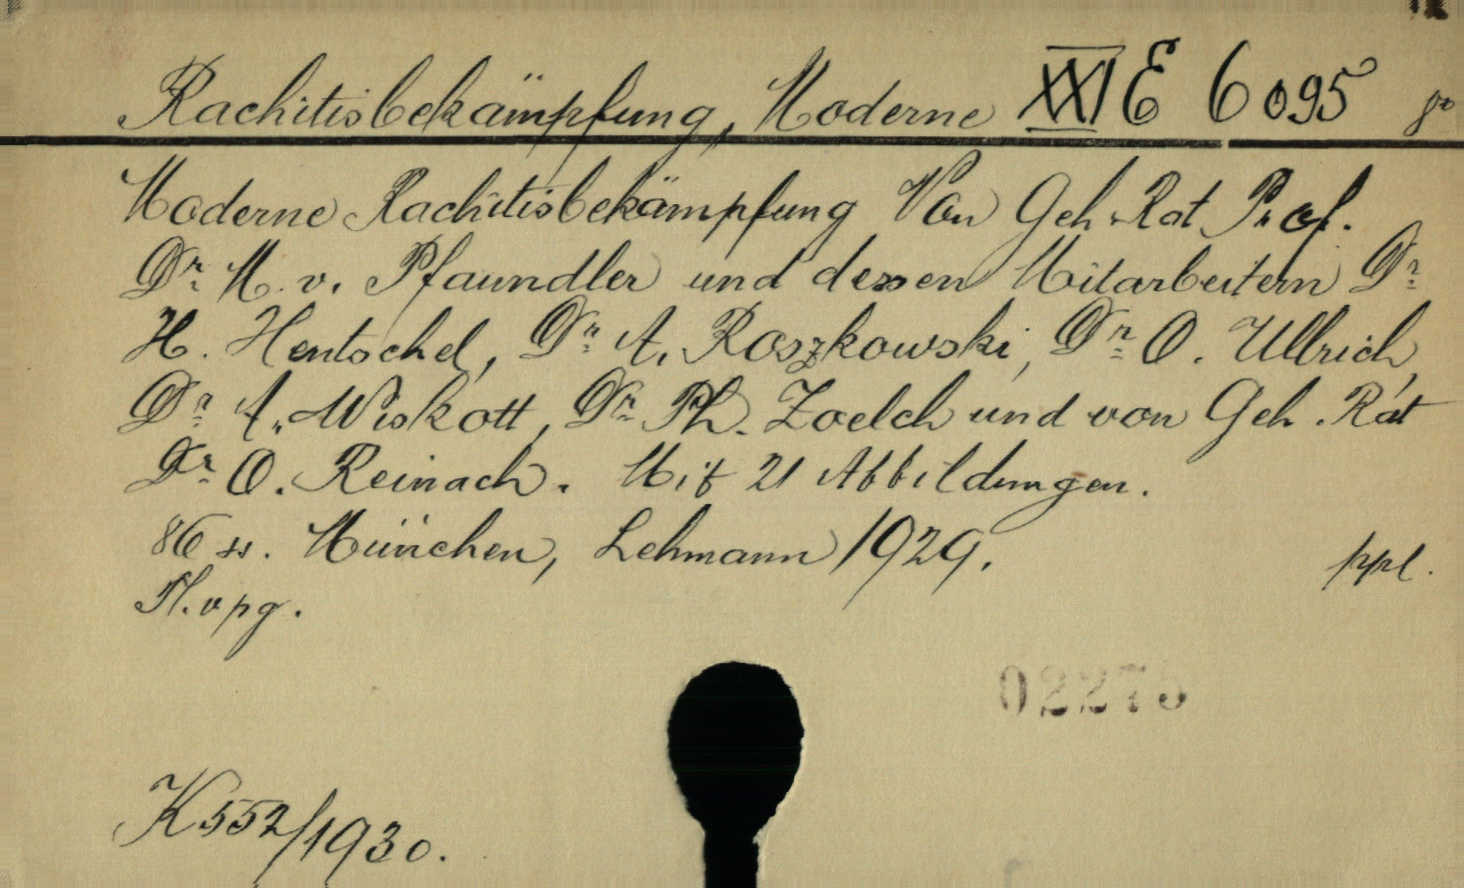 Rachitisbekämpfung, Moderne XXI E 6095 8°
Moderne Rachitisbekämpfung Von Geh. Rat Prof.
Dr M. v. Pfaundler und dessen Mitarbeitern Dr
H. Hentschel, Dr A. Roszkowski, Dr O. Ullrich,
Dr A. Wiskott, Dr Ph. Zoelch und von Geh. Rat
Dr O. Reinach. Mit 21 Abbildungen.
86 ss. München, Lehmann 1929.
ppl.
H. v pg.
02275
K 552/1930.